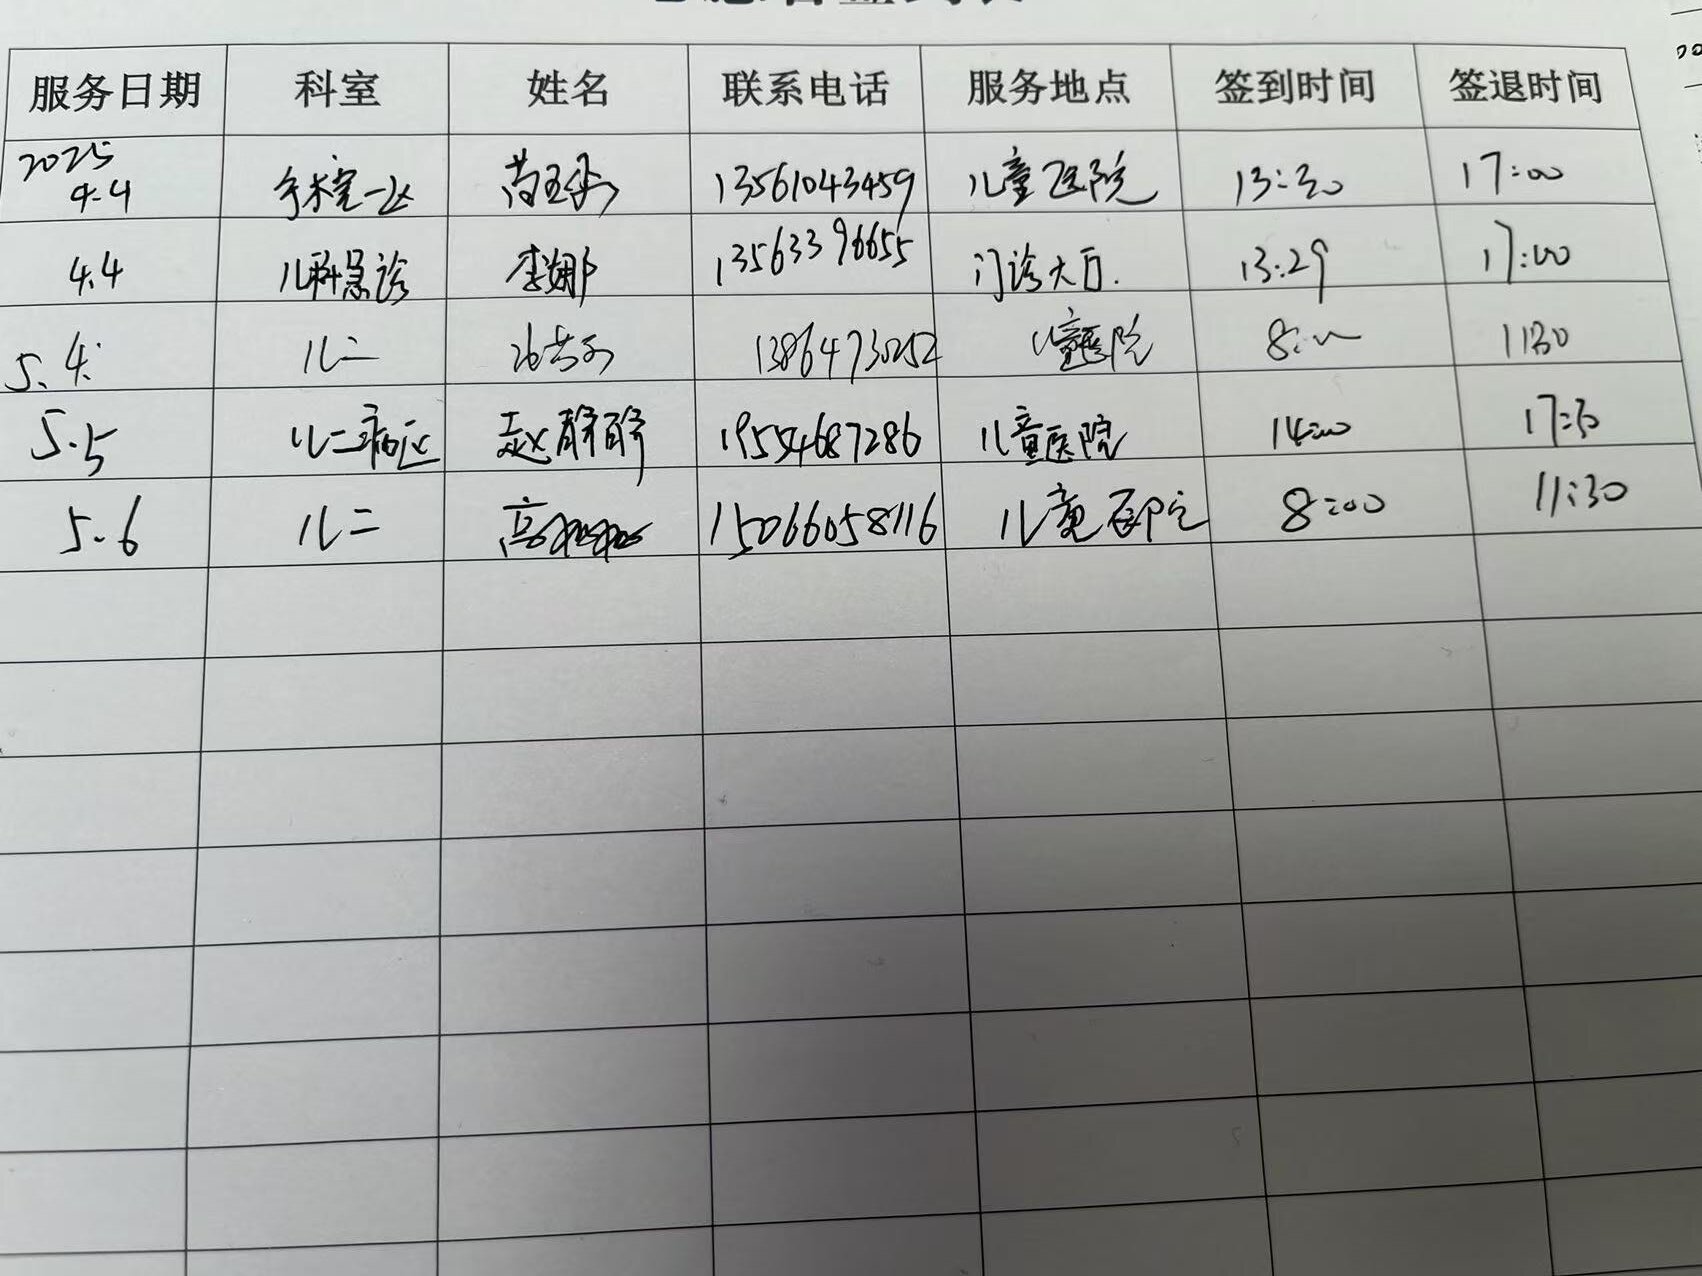 服务日期 科室 姓名 联系电话 服务地点 签到时间 签退时间
2025
4.4 手术室一区 13561043459 儿童医院 13:30 17:00
4.4 儿科急诊 李娜 13563396655 门诊大厅. 13:29 17:00
5.4. 儿二 13864730252 儿童医院 8:00 1130
5.5 儿二病区 赵静静 19554687286 儿童医院 14:00 17:30
5.6 儿二 高 15066058116 儿童医院 8:00 11:30